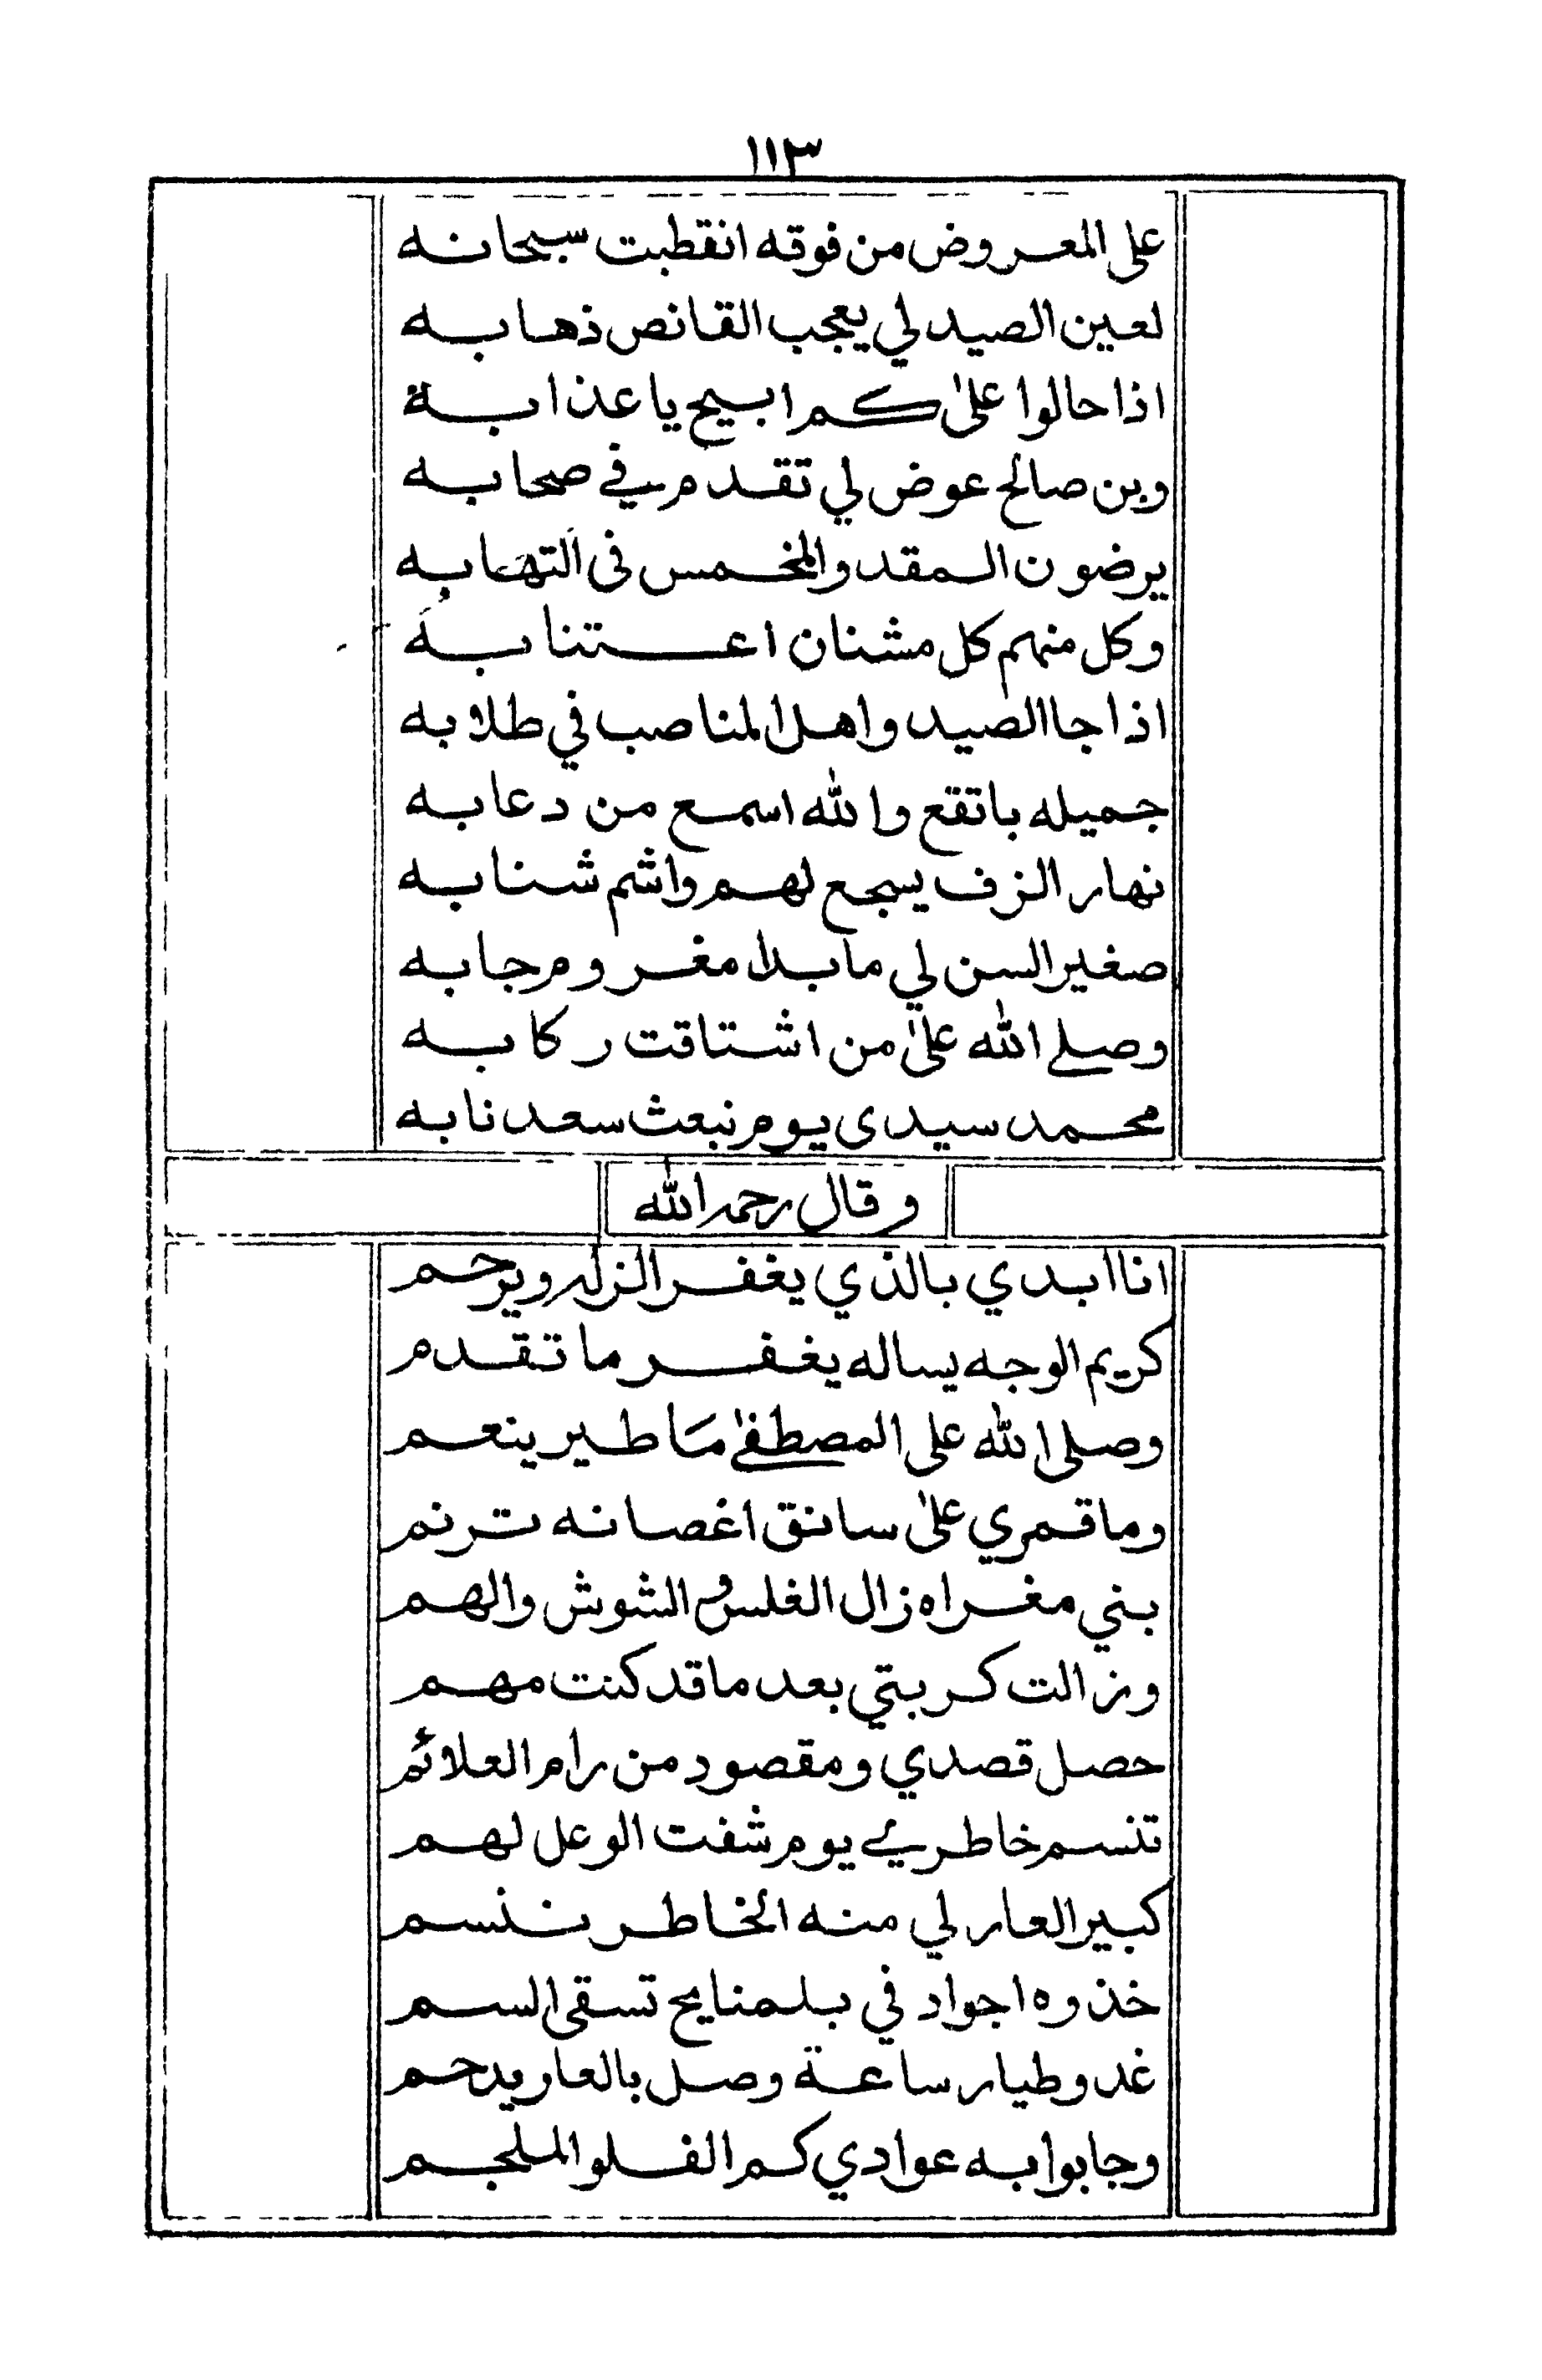 ١١٣
على المعروض من فوقه انقطبت سبحانه
لعين الصيد لي يعجب القانص ذهابه
اذا حالوا على كم ابسيح يا عذابة
وبن صالح عوض لي تقدم في صحابه
يرضون المقد والمخمس فى التهابه
وكل منهم كل مشنان اعتنابه
اذا جا الصيد واهل المناصب في طلابه
جميله باتقع والله اسمع من دعابه
نهار الزف يسجع لهم واشم شنابه
صغير السن لي ما بدا مغروم جابه
وصلى الله على من اشتاقت ركابه
محمد سيدى يوم نبعث سعدنا به
وقال رحمه الله
انا ابدي بالذي يغفر الزله ويرحم
كريم الوجه يساله يغفر ما تقدم
وصلى الله على المصطفى ما طير ينعم
وما قمري على سانق اغصانه ترنم
بني مغراه زال الغلس والشوش والهم
وزالت كربتي بعد ما قد كنت مهم
حصل قصدي ومقصود من رام العلائم
تنسم خاطري يوم شفت الوعل لهم
كبير العار لي منه الخاطر ننسم
خذوه اجواد في بلمنايح تسقى السم
غد وطيار ساعة وصل بالعار يدحم
وجابوا به عوادي كم الفلو الملجم